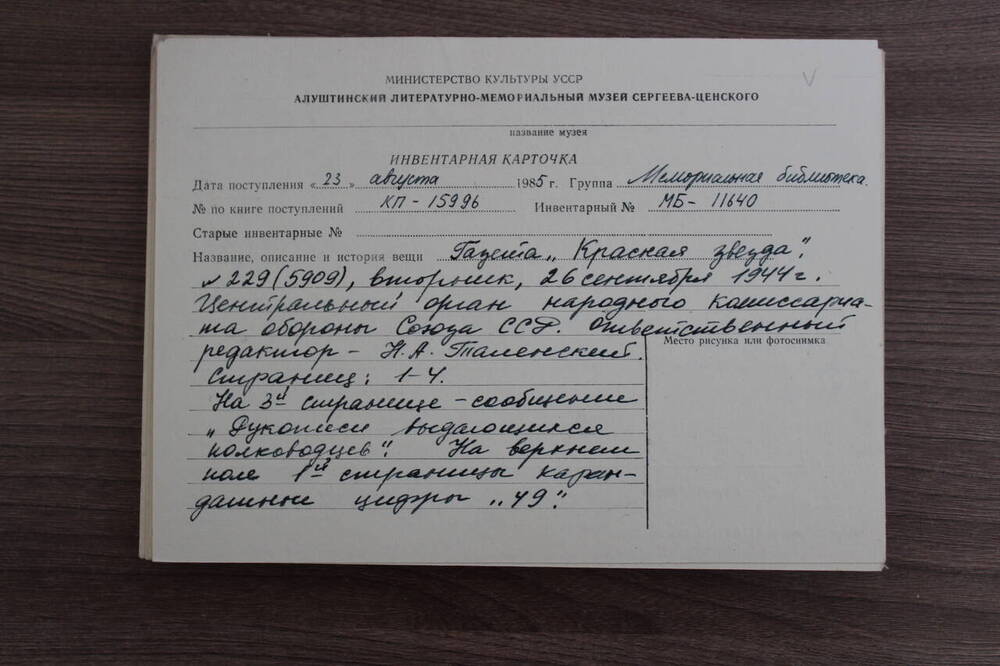 V
МИНИСТЕРСТВО КУЛЬТУРЫ УССР
АЛУШТИНСКИЙ ЛИТЕРАТУРНО-МЕМОРИАЛЬНЫЙ МУЗЕЙ СЕРГЕЕВА-ЦЕНСКОГО
название музея
ИНВЕНТАРНАЯ КАРТОЧКА
Дата поступления «23» августа 1985 г. Группа Мемориальная библиотека.
№ по книге поступлений КП-15996 Инвентарный № МБ-11640
Старые инвентарные №
Название, описание и история вещи Газета „Красная звезда".
№ 229 (5909), вторник, 26 сентября 1944 г.
Центральный орган народного комиссариа-
та обороны Союза ССР. Ответственный
редактор - Н.А. Таленский.
Место рисунка или фотоснимка
Страниц: 1-4.
На 3й странице - сообщение
„Рукописи выдающихся
полководцев". На верхнем
поле 1й страницы каран-
дашные цифры „49".